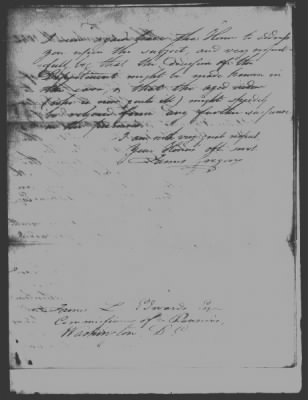 again have the Honor to address
you upon the subject, and very respect-
fully beg that the decision of the
Department might be made known in
the case, so that the aged widow
(who is now quite ill) might speedily
be relieved from any further suspense
in the premises.
I am with very great respect
Your Honors obt servt
James Gregory
James L. Edwards Esq
Commissioner of Pensions
Washington D. C.